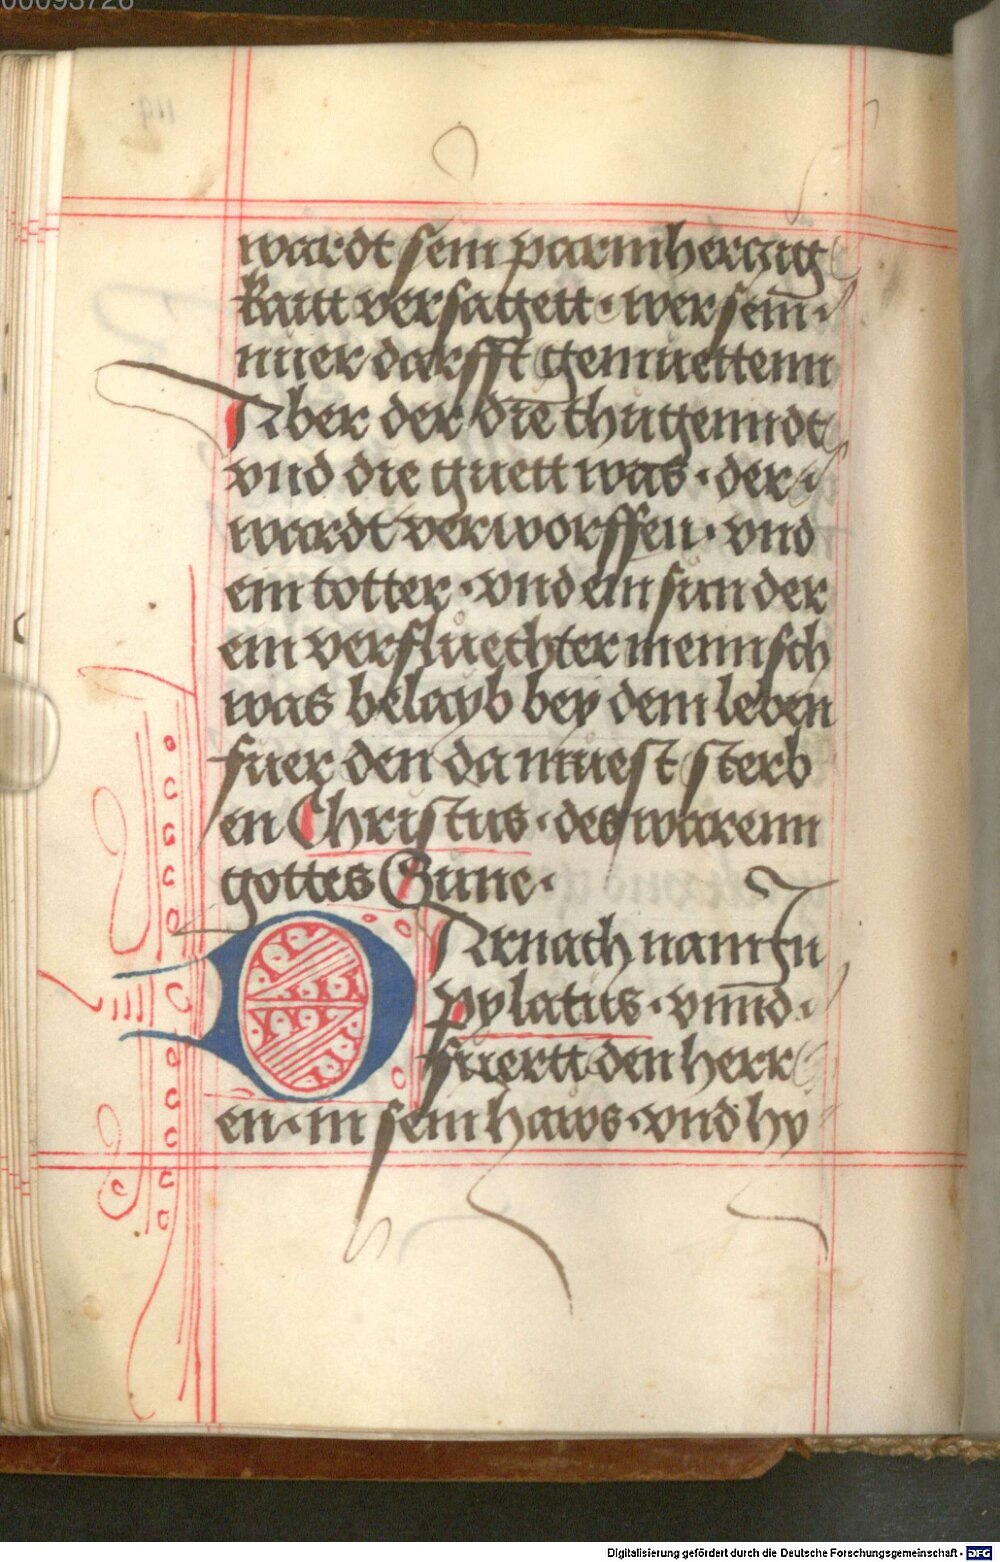 00093726
wardt sein parmherczig
Ratt versagett · wer sein ·
nuer darfft genuettenn
Aber der die thugenndt
vnd die guett was · der ·
wardt verworffen · vnd
ein totter · vnd ein sun der
ein verfluechter mennsch
was belayb bey dem leben
fuer den da muest sterb
en Christus · des warenn
gottes Sune ·
DArnach nam In
pylatus · vnnd ·
fuertt den herr
en · in sein haws · vnd hy
Digitalisierung gefördert durch die Deutsche Forschungsgemeinschaft - DFG